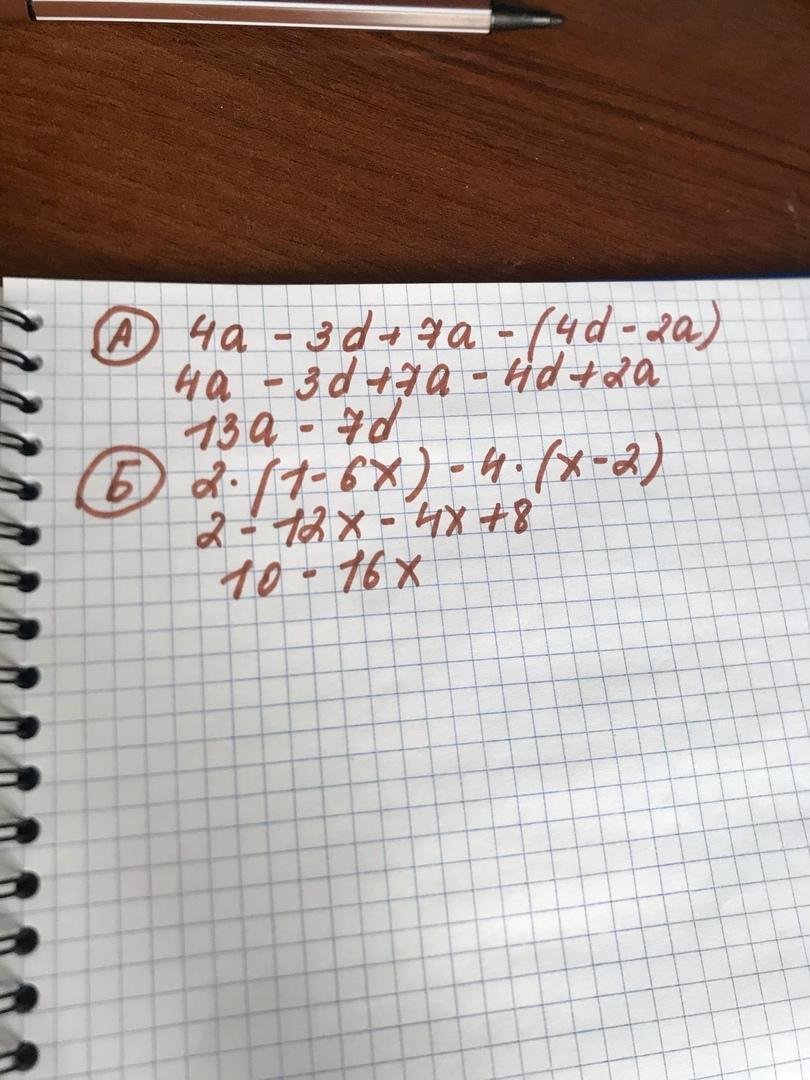 А 4a - 3d + 7a - (4d - 2a)
4a - 3d + 7a - 4d + 2a
13a - 7d
Б 2 · (1 - 6x) - 4 · (x - 2)
2 - 12x - 4x + 8
10 - 16x